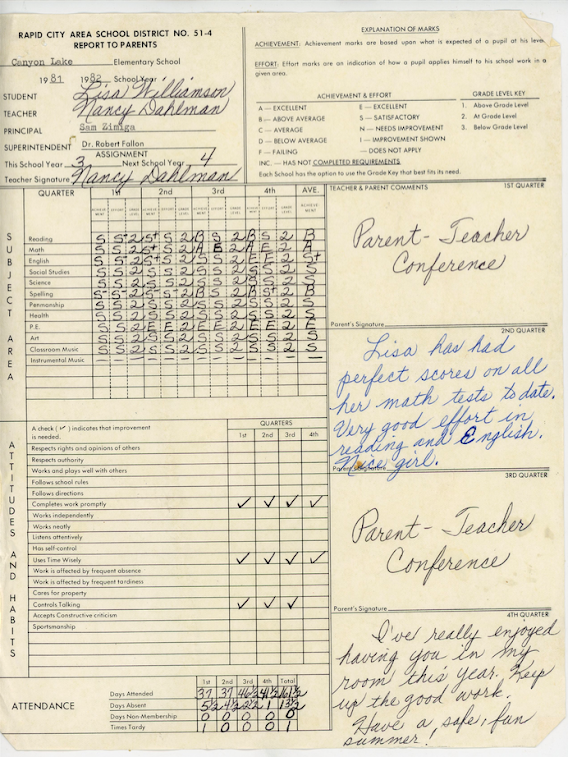 RAPID CITY AREA SCHOOL DISTRICT NO. 51-4
REPORT TO PARENTS
Canyon Lake Elementary School
1981 1982 School Year
STUDENT Lisa Williamson
TEACHER Nancy Dahlman
PRINCIPAL Sam Zimiga
SUPERINTENDENT Dr. Robert Fallon
ASSIGNMENT
This School Year 3 Next School Year 4
Teacher Signature Nancy Dahlman
EXPLANATION OF MARKS
ACHIEVEMENT: Achievement marks are based upon what is expected of a pupil at his level.
EFFORT: Effort marks are an indication of how a pupil applies himself to his school work in a
given area.
ACHIEVEMENT & EFFORT GRADE LEVEL KEY
A — EXCELLENT E — EXCELLENT 1. Above Grade Level
B — ABOVE AVERAGE S — SATISFACTORY 2. At Grade Level
C — AVERAGE N — NEEDS IMPROVEMENT 3. Below Grade Level
D — BELOW AVERAGE I — IMPROVEMENT SHOWN
F — FAILING — DOES NOT APPLY
INC. — HAS NOT COMPLETED REQUIREMENTS
Each School has the option to use the Grade Level Key that best fits its need.
QUARTER 1st 2nd 3rd 4th AVE.
SUBJECT AREA
Reading S S+ 2 S+ S 2 B S 2 B S 2 B
Math S S 2 S+ S 2 A E 2 A E 2 A
English S S+ 2 S+ S 2 S S 2 E E 2 S+
Social Studies S S 2 S S 2 S S 2 S S 2 S
Science S S 2 S S 2 S S 2 S S 2 S
Spelling S- S- 2 S- S 2 B S 2 B S+ 2 B
Penmanship S S 2 S S 2 S S 2 S S 2 S
Health S S 2 S S 2 S S 2 S S 2 S
P.E. S S 2 E E 2 E E 2 E E 2 E
Art S S 2 S S 2 S S 2 S S 2 S
Classroom Music S S 2 S S 2 S S 2 S S 2 S
Instrumental Music — — — — — — — — — — — — —
ATTITUDES AND HABITS
A check (✓) indicates that improvement
is needed.
QUARTERS
1st 2nd 3rd 4th
Respects rights and opinions of others
Respects authority
Works and plays well with others
Follows school rules
Follows directions
Completes work promptly ✓ ✓ ✓ ✓
Works independently
Works neatly
Listens attentively
Has self-control
Uses Time Wisely ✓ ✓ ✓ ✓
Work is affected by frequent absence
Work is affected by frequent tardiness
Cares for property
Controls Talking ✓ ✓ ✓
Accepts Constructive criticism
Sportsmanship
ATTENDANCE
1st 2nd 3rd 4th Total
Days Attended 37 37
Days Absent 5½ 4½ 2½ 1 13½
Days Non-Membership 0 0 0 0 0
Times Tardy 1 0 0 0 1
TEACHER & PARENT COMMENTS 1ST QUARTER
Parent-Teacher
Conference
Parent's Signature
2ND QUARTER
Lisa has had
perfect scores on all
her math tests to date.
Very good effort in
reading and English.
Nice girl.
Parent's Signature
3RD QUARTER
Parent-Teacher
Conference
Parent's Signature
4TH QUARTER
I've really enjoyed
having you in my
room this year. Keep
up the good work.
Have a safe, fun
summer!